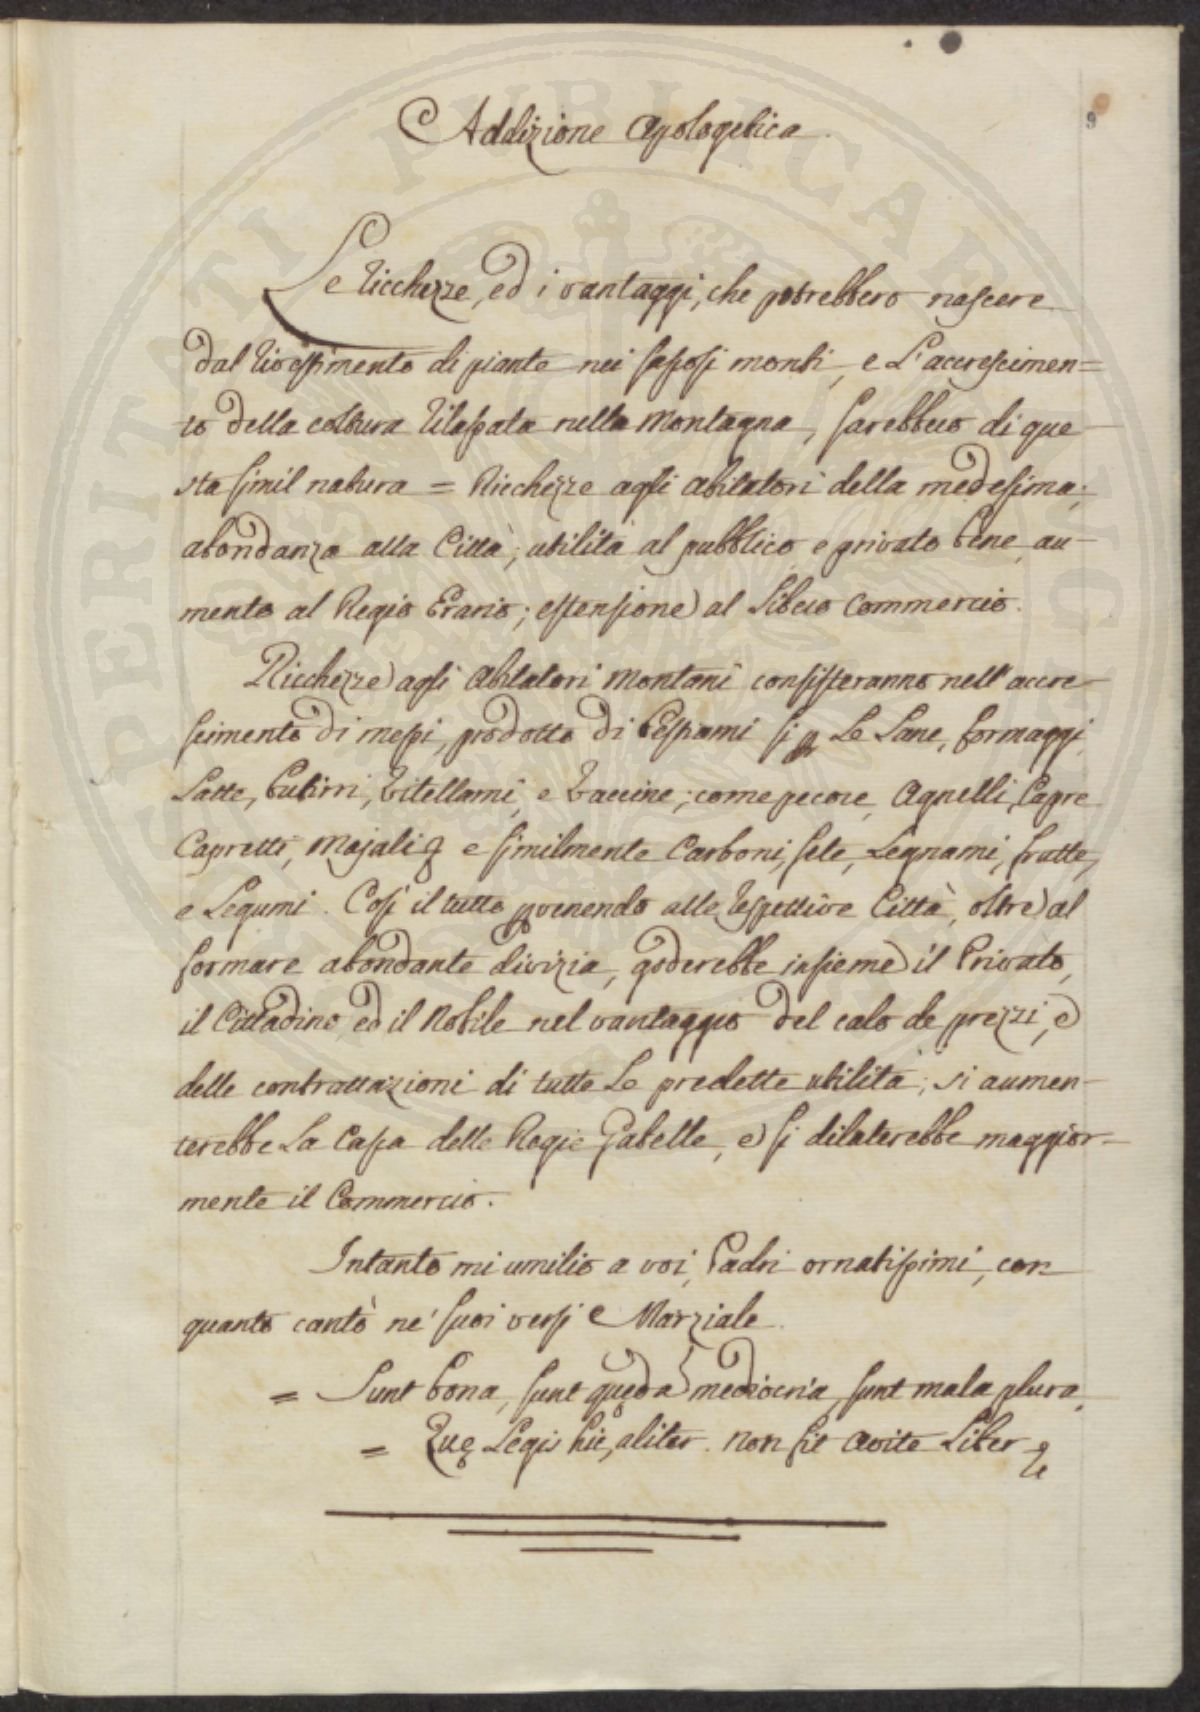 9
Addizione Apologetica.
Le Ricchezze, ed i vantaggi, che potrebbero nascere
dal rivestimento di piante nei sassosi monti, e l'accrescimen=
to della coltura rilassata nella Montagna, sarebbero di que-
sta simil natura = Ricchezze agli abitatori della medesima;
abondanza alla Città; utilità al pubblico, e privato bene, au-
mento al Regio Erario; estensione al libero Commercio.
Ricchezze agli Abitatori Montani consisteranno nell'accre-
scimento di messi, prodotto di Bestiami Le Lane, formaggi,
Latte, butirri, Vitellami, e Vaccine; come pecore, Agnelli, Capre
Capretti, Majali e similmente Carboni, sete, Legnami, frutte,
e Legumi. Così il tutto provenendo alle respettive Città, oltre al
formare abondante divizia, goderebbe insieme il Privato,
il Cittadino, ed il Nobile nel vantaggio del calo de prezzi, e
delle contrattazioni di tutte le predette utilità; si aumen-
terebbe La Cassa delle Regie Gabelle, e si dilaterebbe maggior-
mente il Commercio.
Intanto mi umilio a voi, Padri ornatissimi, con
quanto cantò ne' suoi versi Marziale.
= Sunt bona, sunt quędā mediocria, sunt mala plura,
= Quę Legis hic, aliter non fit Avite Liber